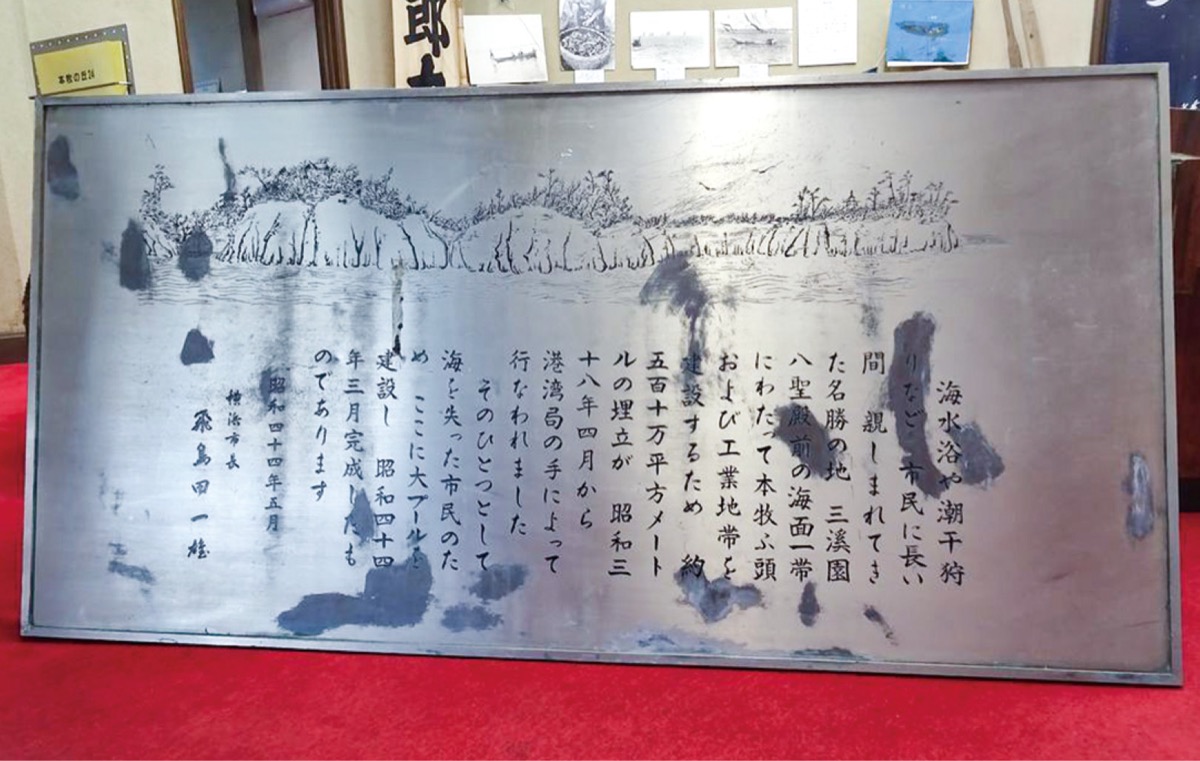 海水浴や潮干狩
りなど 市民に長い
間 親しまれてき
た名勝の地 三溪園
八聖殿前の海面一帯
にわたって本牧ふ頭
および工業地帯を
建設するため 約
五百十万平方メート
ルの埋立が 昭和三
十八年四月から
港湾局の手によって
行なわれました
そのひとつとして
海を失った市民のた
め ここに大プールを
建設し 昭和四十四
年三月完成したも
のであります
昭和四十四年五月
横浜市長
飛鳥田一雄
郎